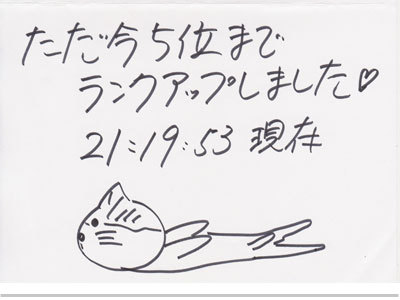 ただ今5位まで
ランクアップしました♡
21:19:53 現在